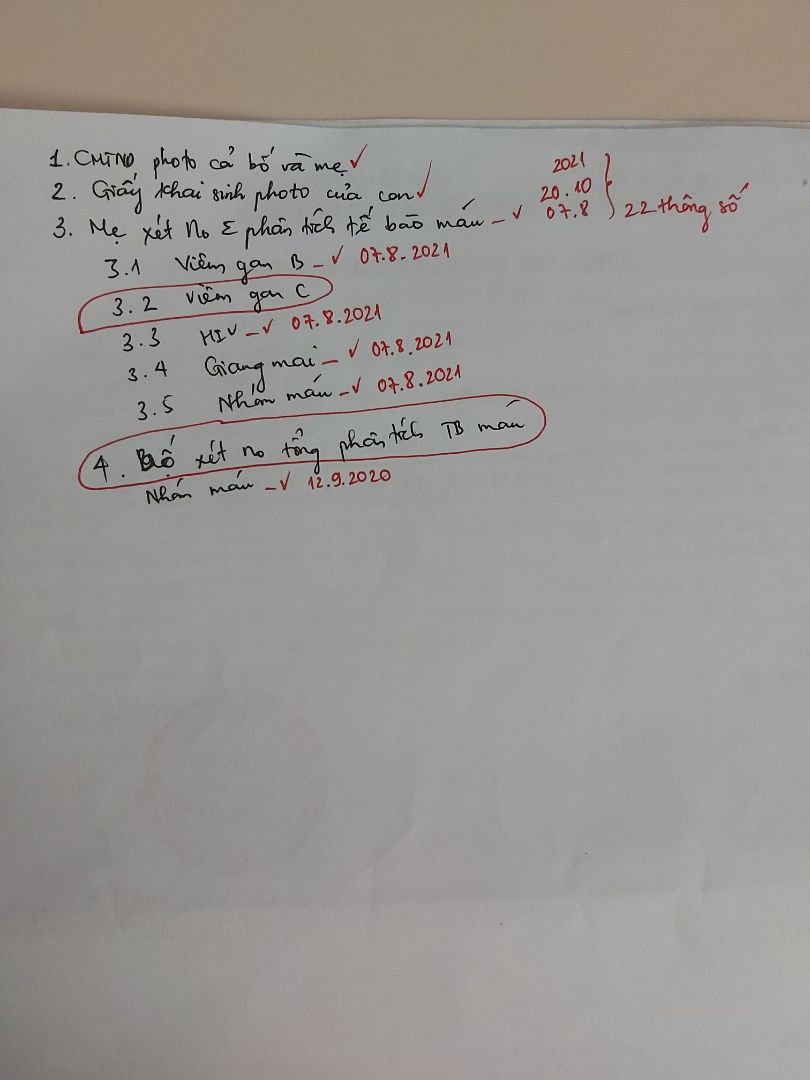 1. CMTND photo cả bố và mẹ ✓
2. Giấy khai sinh photo của con ✓
3. Mẹ xét No Σ phân tích tế bào máu - ✓ 2021 20.10 07.8 } 22 thông số
3.1 Viêm gan B - ✓ 07.8.2021
3.2 Viêm gan C
3.3 HIV - ✓ 07.8.2021
3.4 Giang mai - ✓ 07.8.2021
3.5 Nhóm máu - ✓ 07.8.2021
4. Bố xét no tổng phân tích TB máu
Nhóm máu - ✓ 12.9.2020